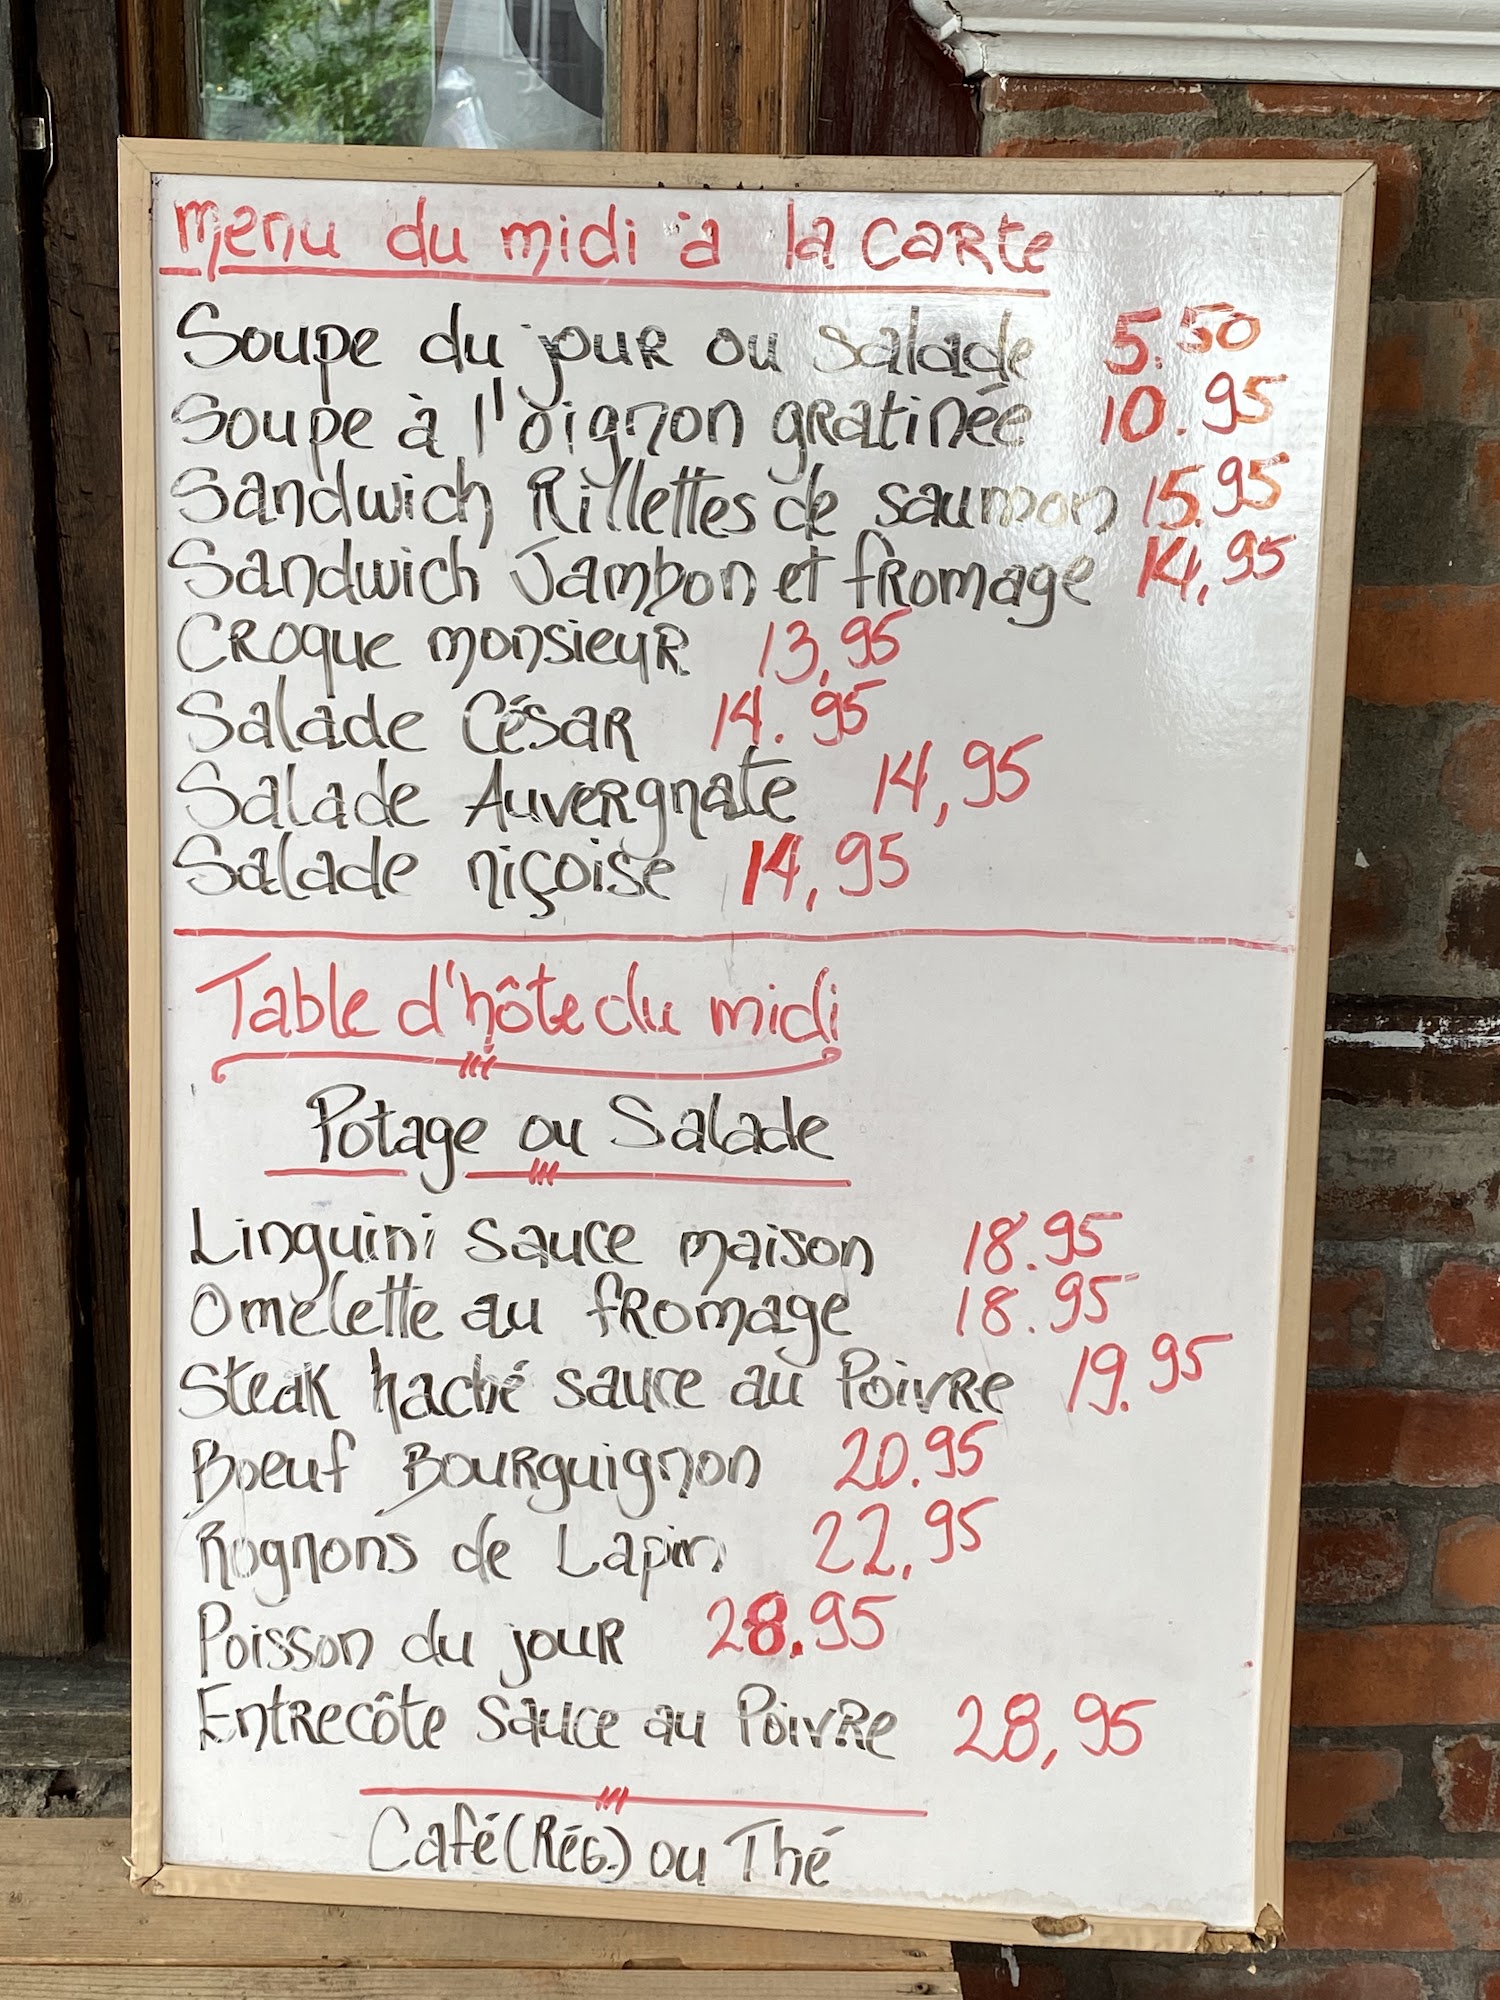 Menu du midi à la carte
Soupe du jour ou salade 5.50
Soupe à l'oignon gratinée 10.95
Sandwich Rillettes de saumon 15.95
Sandwich Jambon et fromage 14,95
Croque monsieur 13,95
Salade César 14.95
Salade Auvergnate 14,95
Salade niçoise 14,95
Table d'hôte du midi
Potage ou Salade
Linguini sauce maison 18.95
Omelette au fromage 18.95
Steak haché sauce au Poivre 19.95
Boeuf Bourguignon 20.95
Rognons de Lapin 22,95
Poisson du jour 28.95
Entrecôte sauce au Poivre 28,95
Café (Rég.) ou Thé